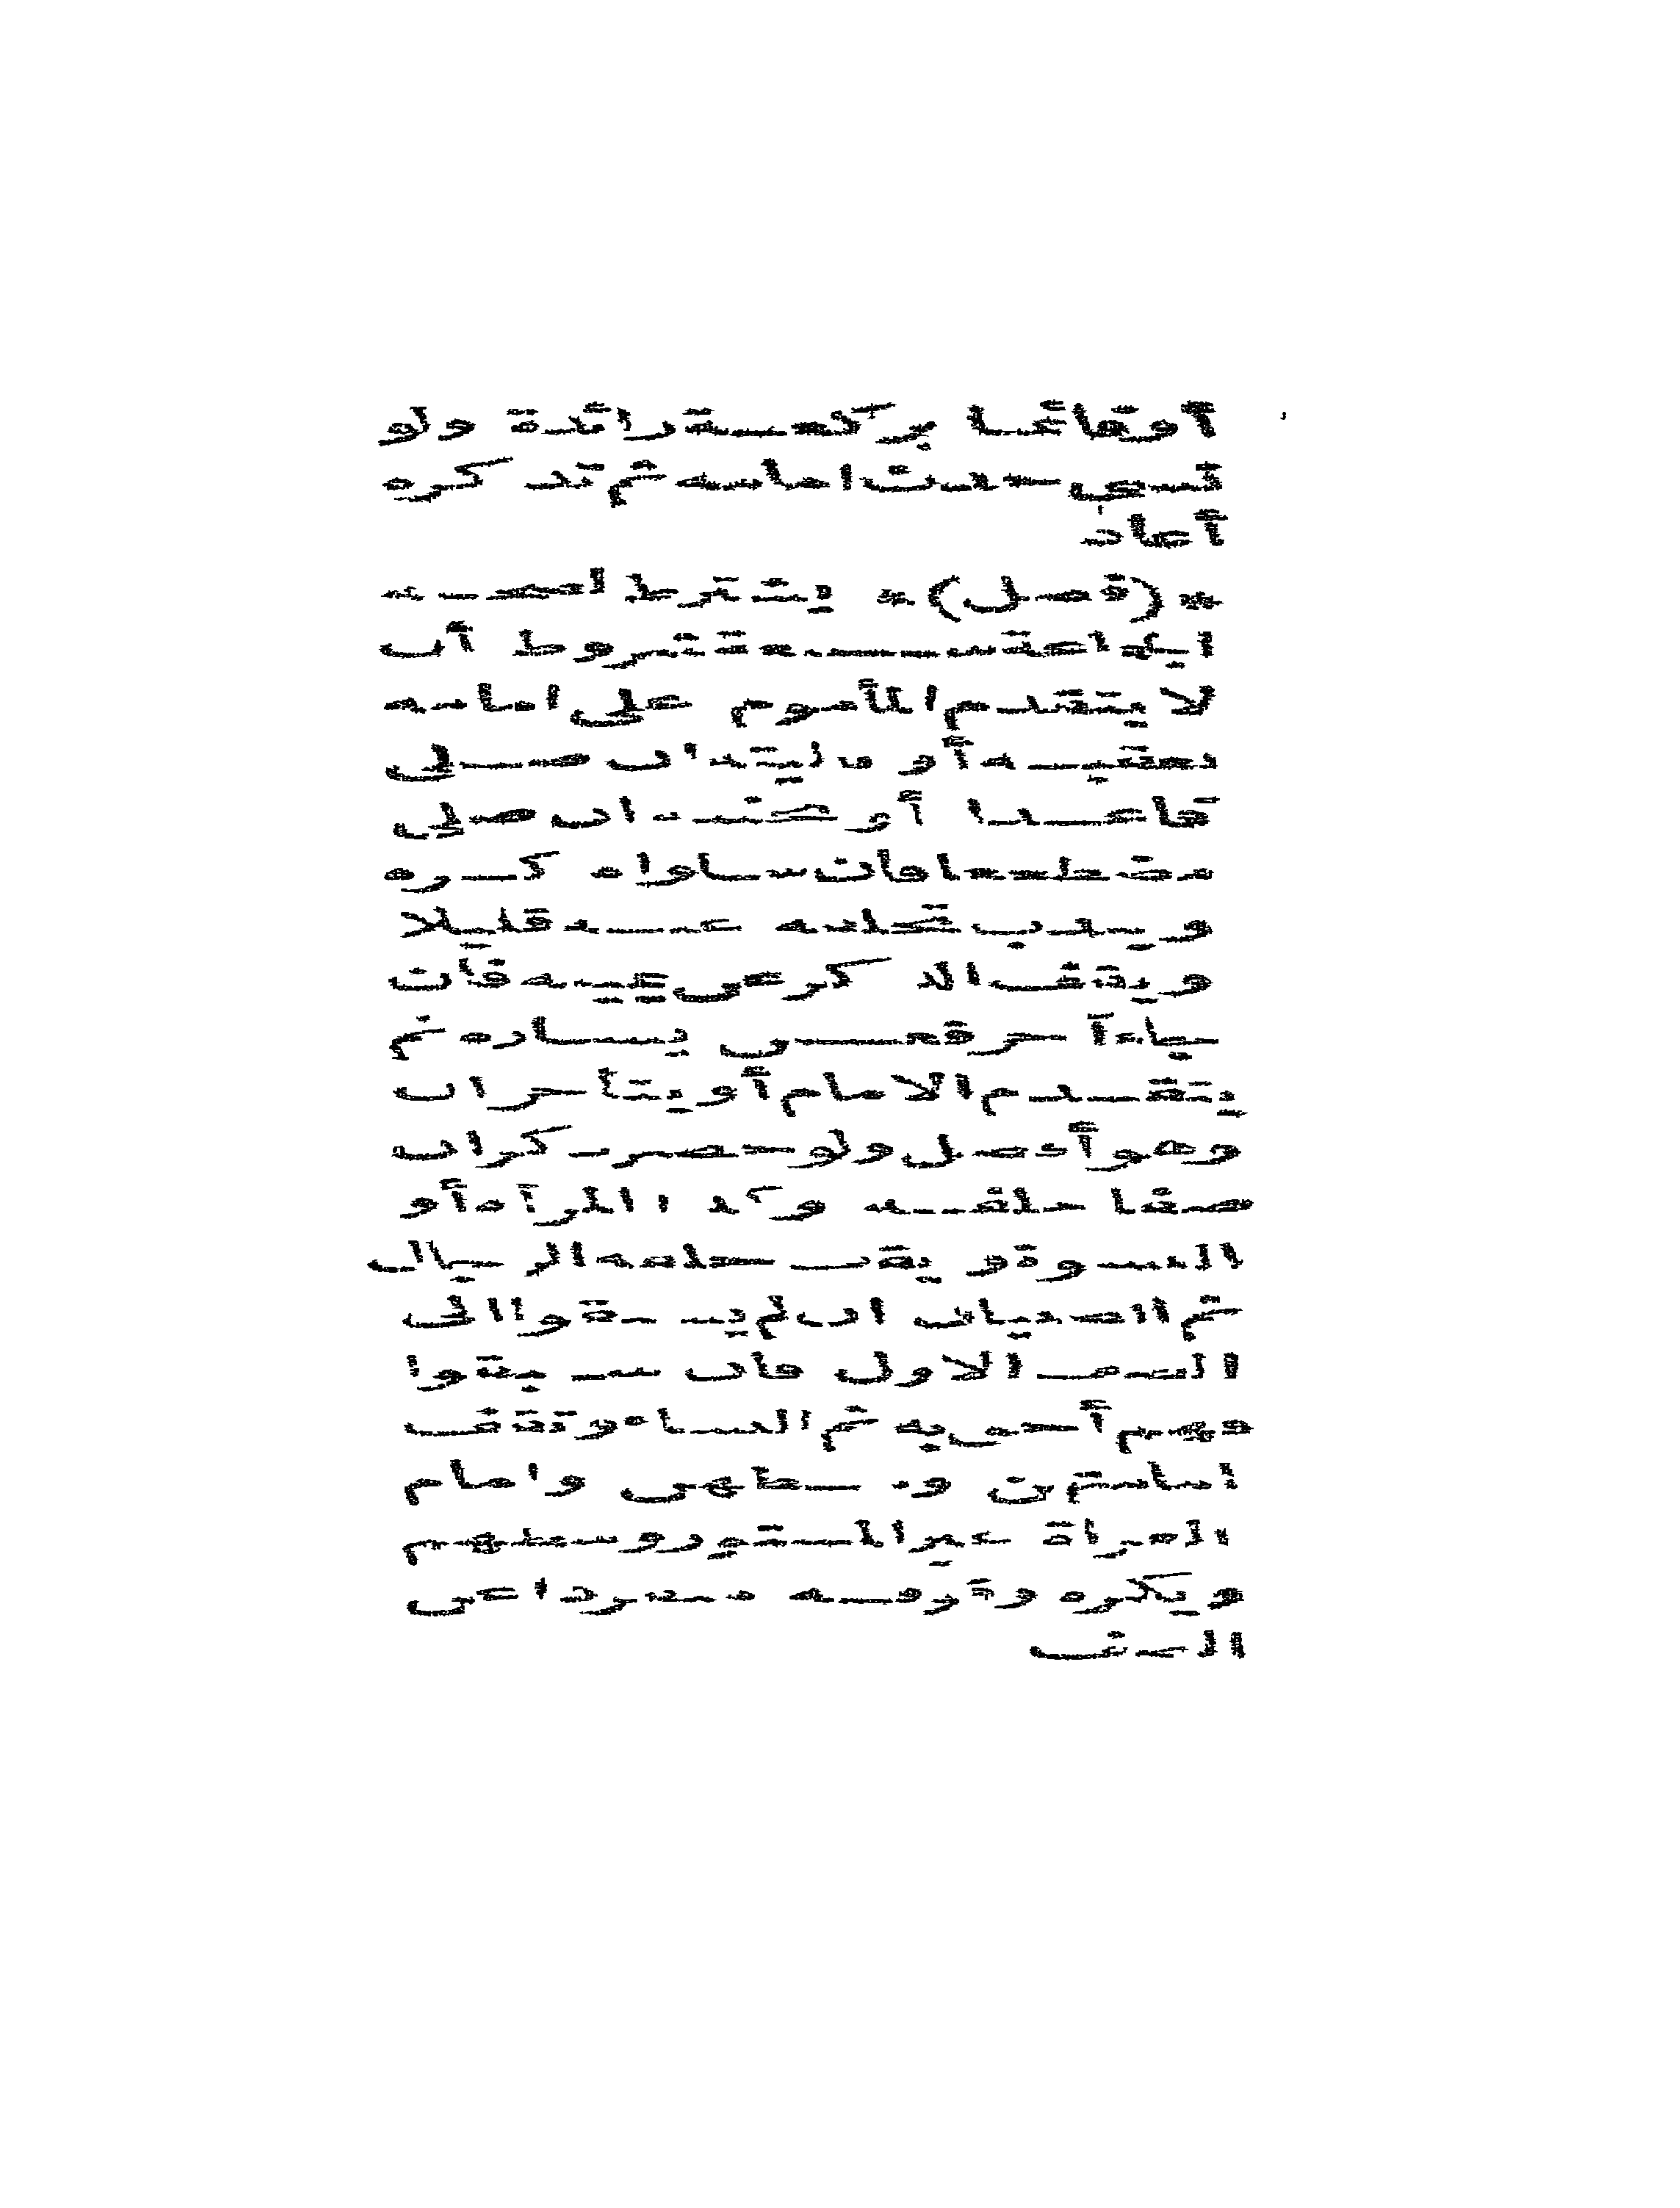 أو قائما بركعة زائدة ولو
نسى حدث امامه ثم تذكره
أعاد
* (فصل) * يشترط لصحة
الجماعة سبعة شروط أن
لا يتقدم المأموم على امامه
بعقبه أو بأليتيه ان صلى
قاعدا أو بجنبه ان صلى
مضطجعا فان ساواه كره
ويندب تخلفه عنه قليلا
ويقف الذكر عن يمينه فان
جاء آخر فعن يساره ثم
يتقدم الامام أو يتأخران
وهو أفضل ولو حضر ذكران
صفا خلفه وكذا المرأة أو
النسوة ويقف خلفه الرجال
ثم الصبيان ان لم يسبقوا الى
الصف الاول فان سبقوا
فهم أحق به ثم النساء وتقف
امامتهن وسطهن وامام
العراة غير المستور وسطهم
ويكره وقوفه منفردا عن
الصف